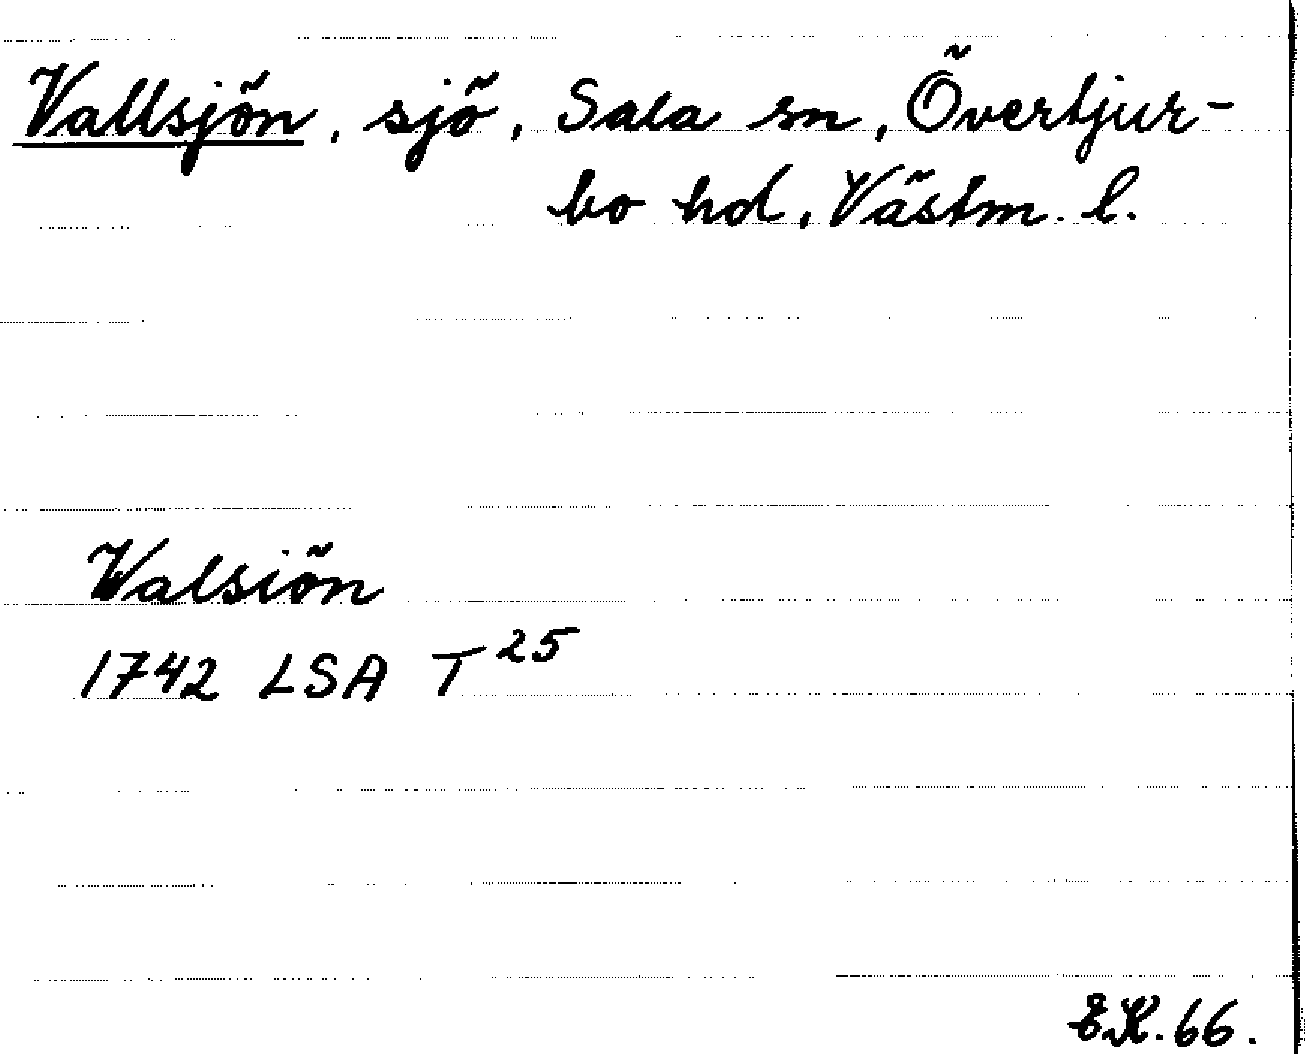 Vallsjön, sjö, Sala sn, Övertjur-
bo hd, Västm. l.
Walsiön
1742 LSA T 25
E.K. 66.